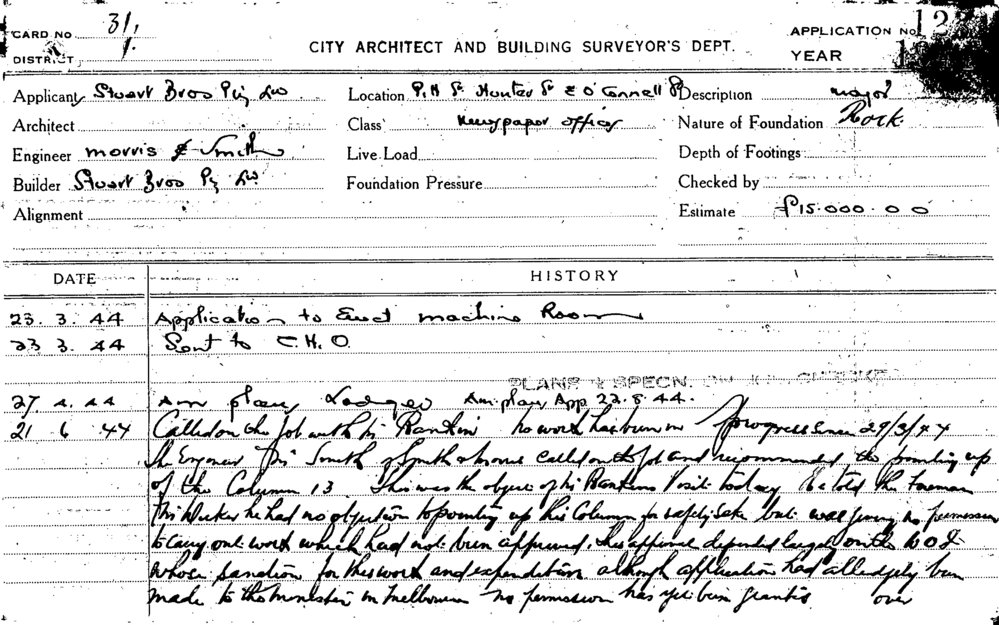 CARD NO 31/1.
DISTRICT
CITY ARCHITECT AND BUILDING SURVEYOR'S DEPT.
APPLICATION No.
YEAR
Applicant Stuart Bros Pty Ltd
Location Pitt St Hunter St & O'Connell St
Description major
Architect
Class Newspaper offices
Nature of Foundation Rock
Engineer Morris & Smith
Live Load
Depth of Footings
Builder Stuart Bros Pty Ltd.
Foundation Pressure
Checked by
Alignment
Estimate £15.000.00
DATE HISTORY
23. 3. 44 Application to Erect machine Room
23 3. 44 Sent to C.H.O.
PLANS & SPECN.
27 4. 44 Am plans Lodged Am plan App 22.8.44.
21 6 44 Called on the job with Mr Rankin no work has been in progress since 29/3/44
The Engineer Mr Smith of called on the job and recommended the up
of the Column 13 This was the object of Mr Rankins Visit today He told the Foreman
Mr he had no objection to up this Column for safety sake but was giving no permission
to carry out work which had not been approved. This approval depended largely on the
whose sanction for this work and expenditure although application had alledgely been
made to the Minister in Melbourne no permission has yet been granted over